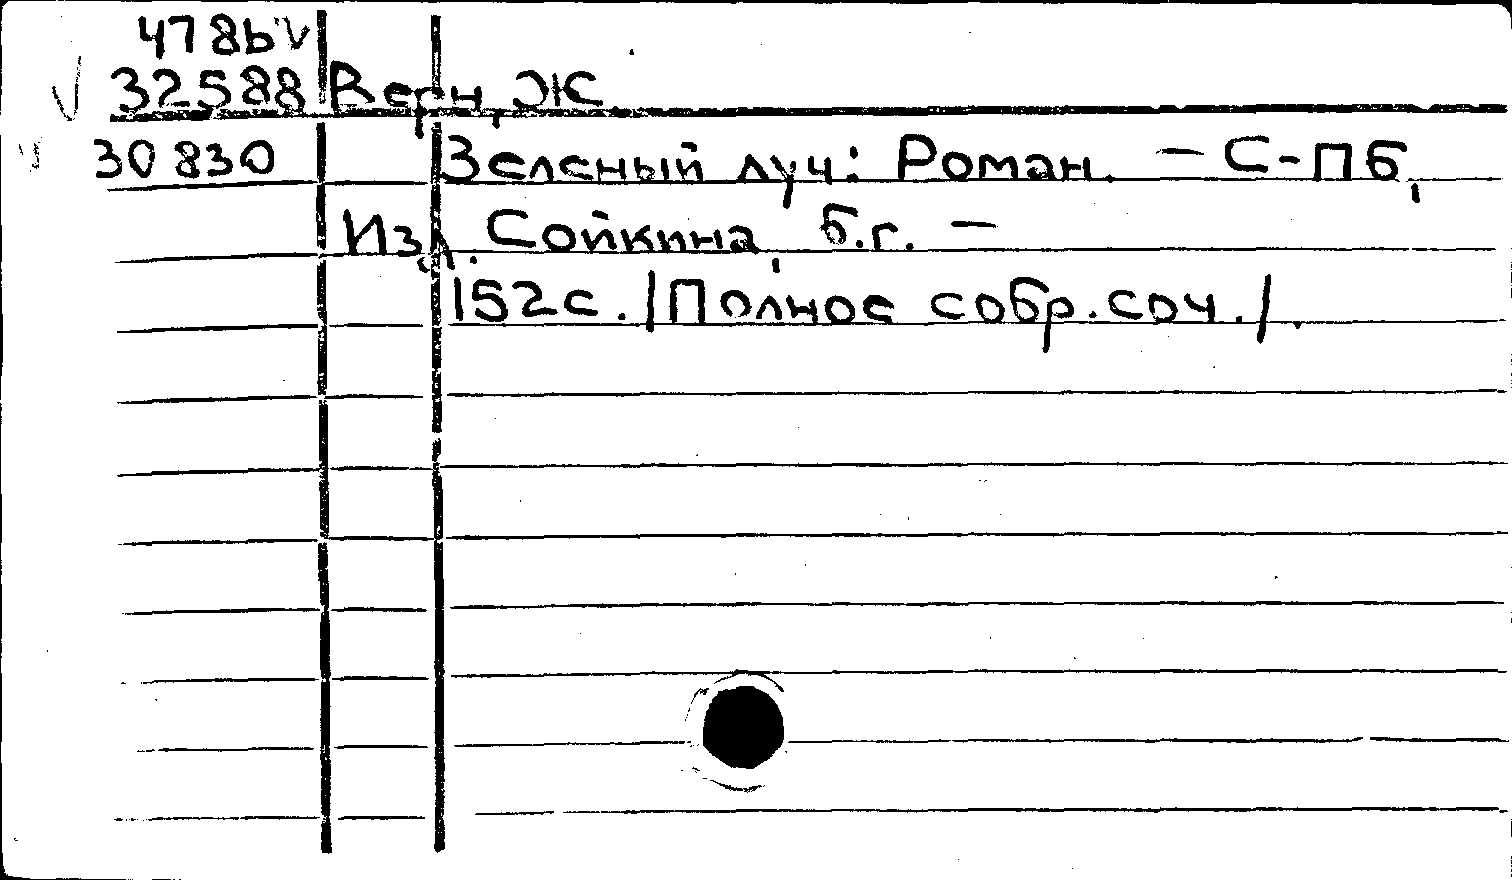 478Ь V
V 32588 Верн, Ж.
30830 Зеленый луч: Роман. – С-Пб,
Изд. Сойкина, б.г. –
152с. /Полное собр. соч./.